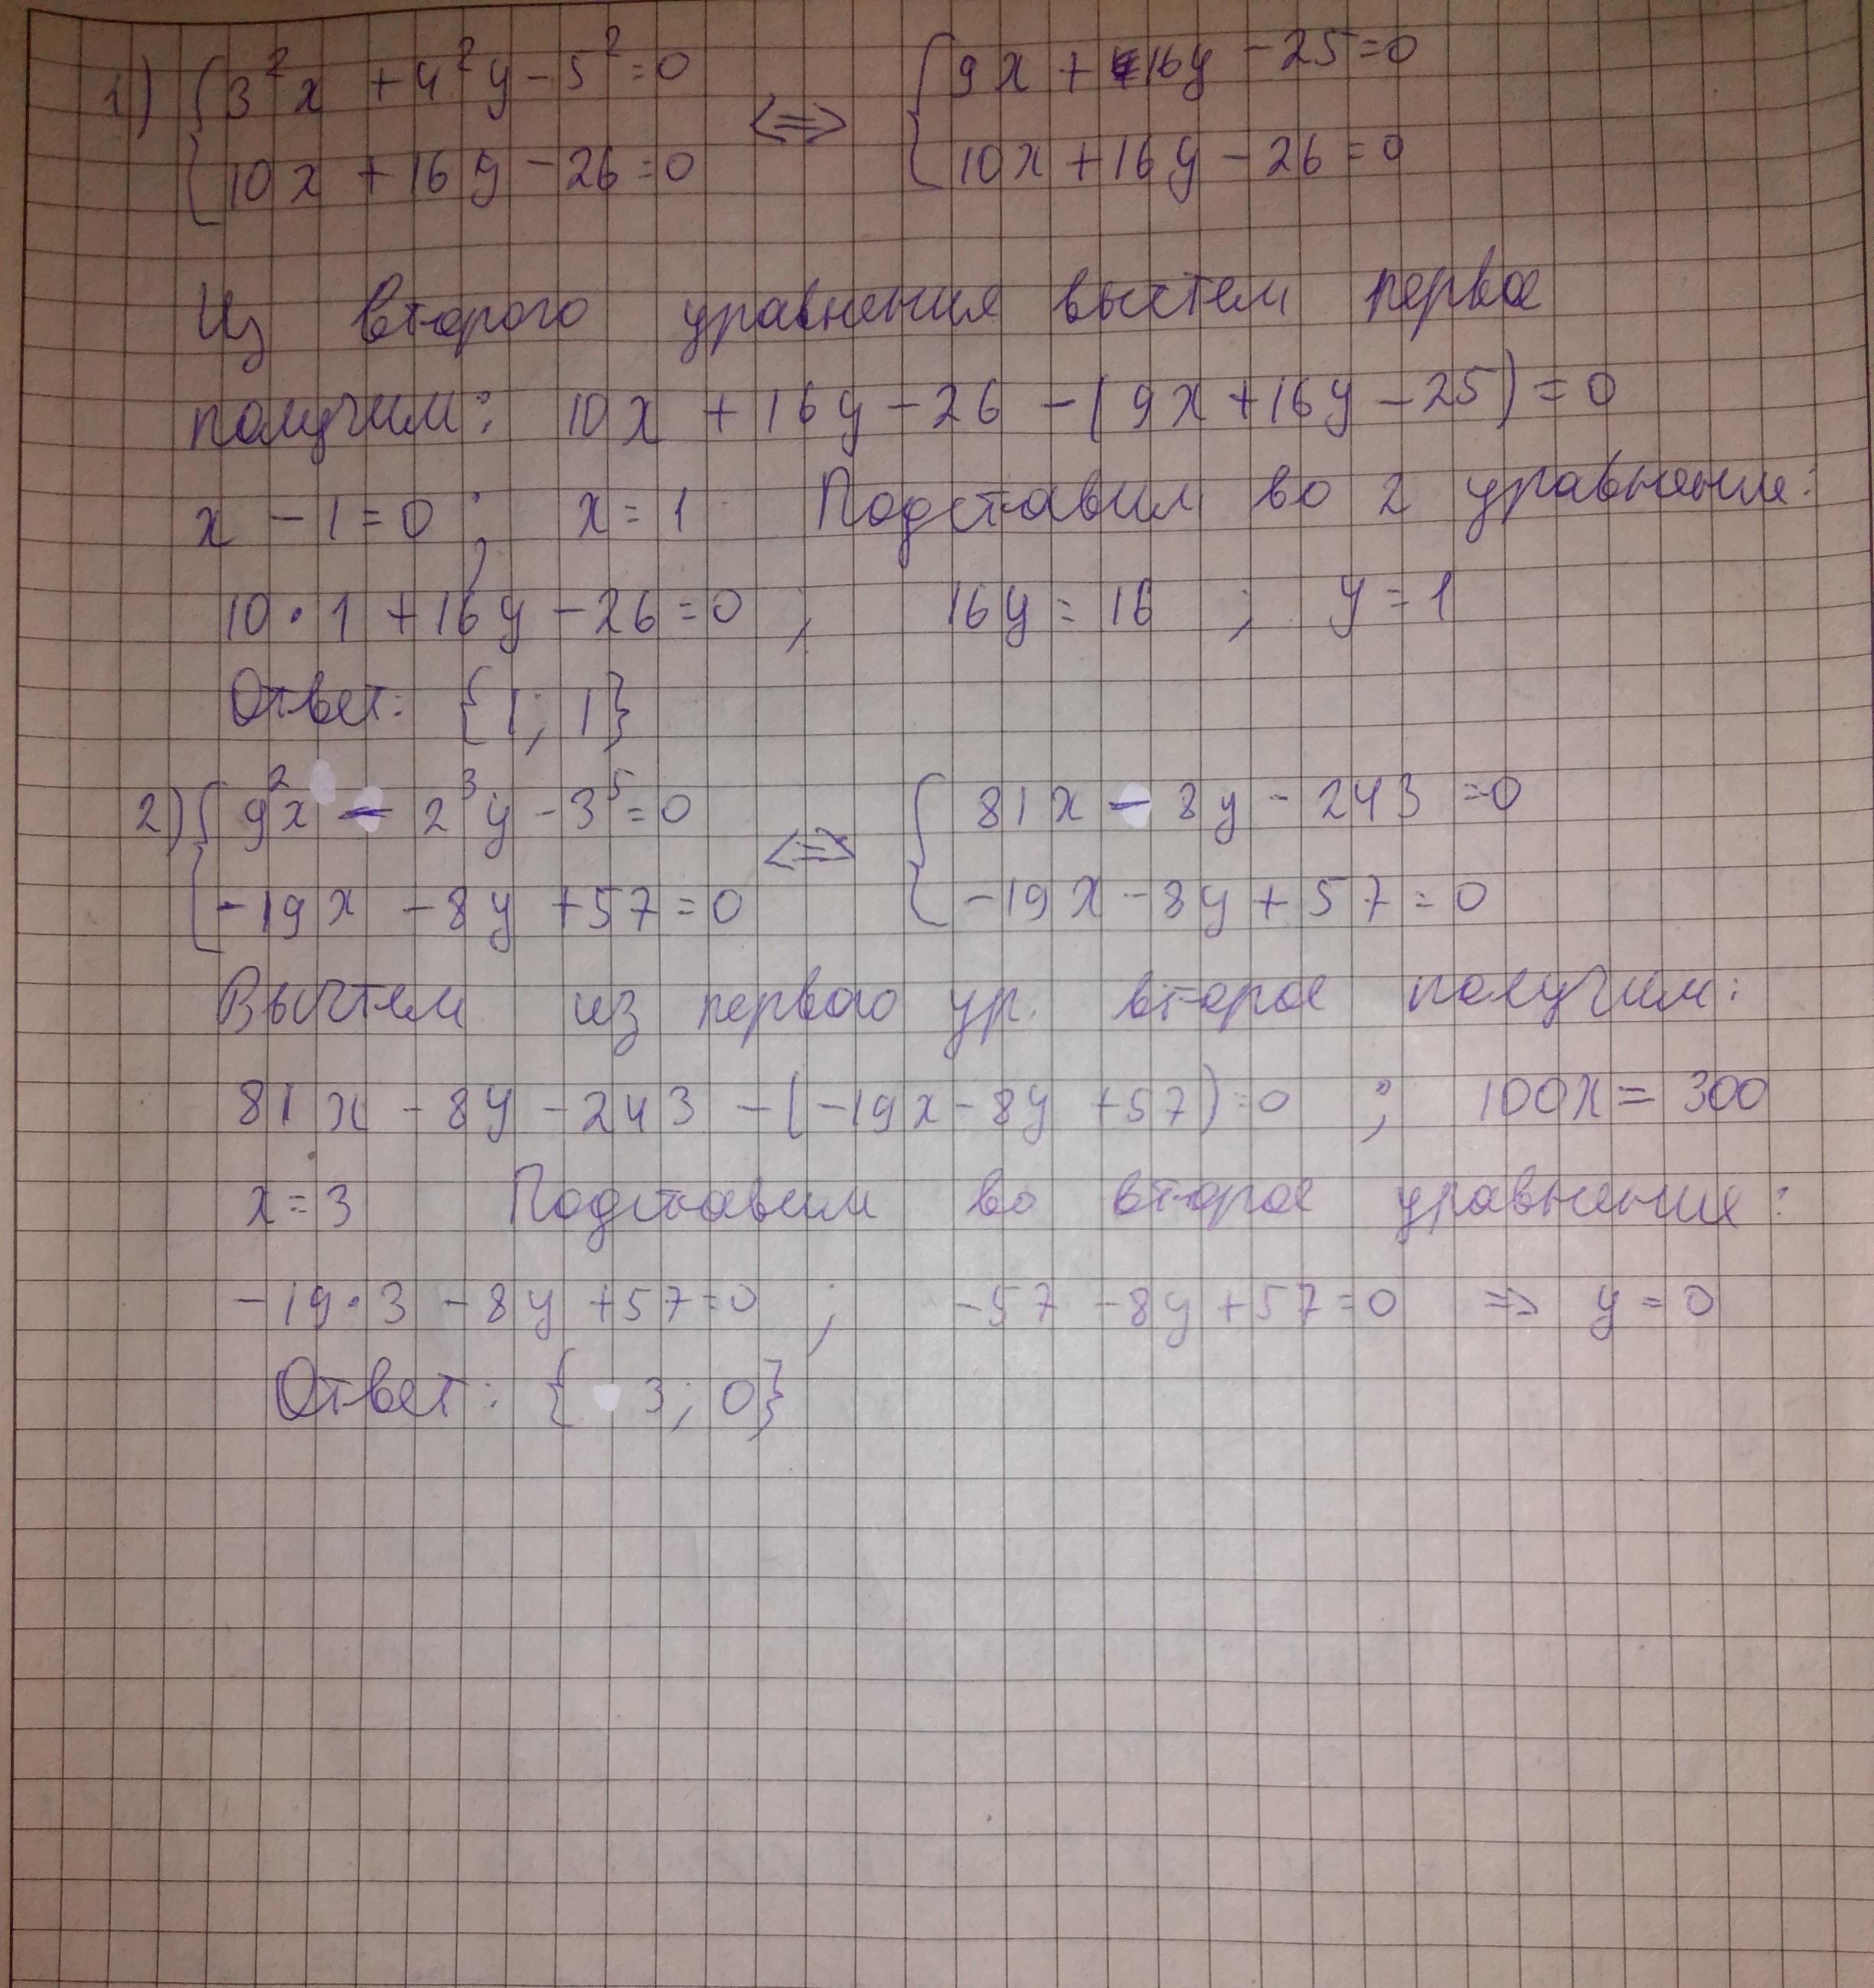 1) { 3²x + 4²y - 5² = 0 <=> { 9x + 16y - 25 = 0
10x + 16y - 26 = 0 10x + 16y - 26 = 0
Из второго уравнения вычтем первое
получим: 10x + 16y - 26 - (9x + 16y - 25) = 0
x - 1 = 0 ; x = 1 Подставим во 2 уравнение:
10 · 1 + 16y - 26 = 0 ; 16y = 16 ; y = 1
Ответ: {1; 1}
2) { 9²x - 2³y - 3⁵ = 0 <=> { 81x - 8y - 243 = 0
-19x - 8y + 57 = 0 -19x - 8y + 57 = 0
Вычтем из первого ур. второе получим:
81x - 8y - 243 - (-19x - 8y + 57) = 0 ; 100x = 300
x = 3 Подставим во второе уравнение:
-19 · 3 - 8y + 57 = 0 ; -57 - 8y + 57 = 0 => y = 0
Ответ: {3; 0}